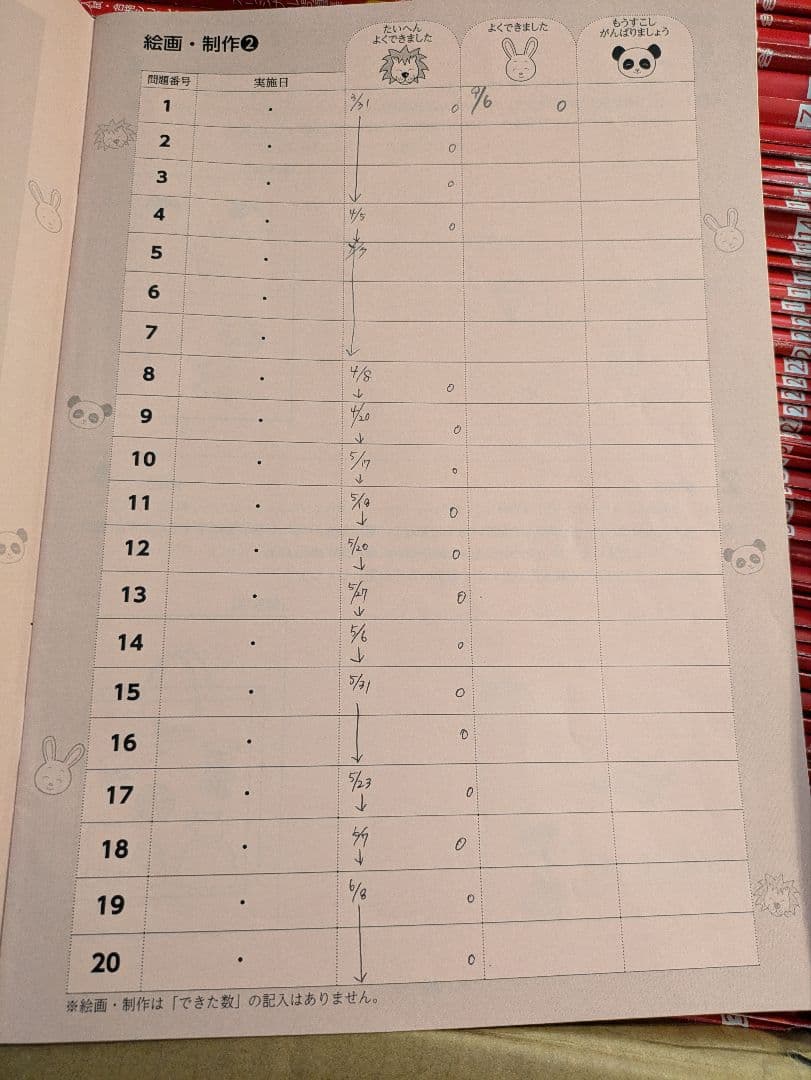 絵画・制作❷
たいへん
よくできました
よくできました
もうすこし
がんばりましょう
問題番号 実施日
1 ・ 3/31 0 9/6 0
2 ・ 0
3 ・ 0
4 ・ 4/5 0
5 ・
6 ・
7 ・
8 ・ 4/8 0
9 ・ 4/20 0
10 ・ 5/17 0
11 ・ 5/18 0
12 ・ 5/20 0
13 ・ 5/27 0
14 ・ 5/6 0
15 ・ 5/31 0
16 ・ 0
17 ・ 5/23 0
18 ・ 0
19 ・ 6/8 0
20 ・ 0
※絵画・制作は「できた数」の記入はありません。